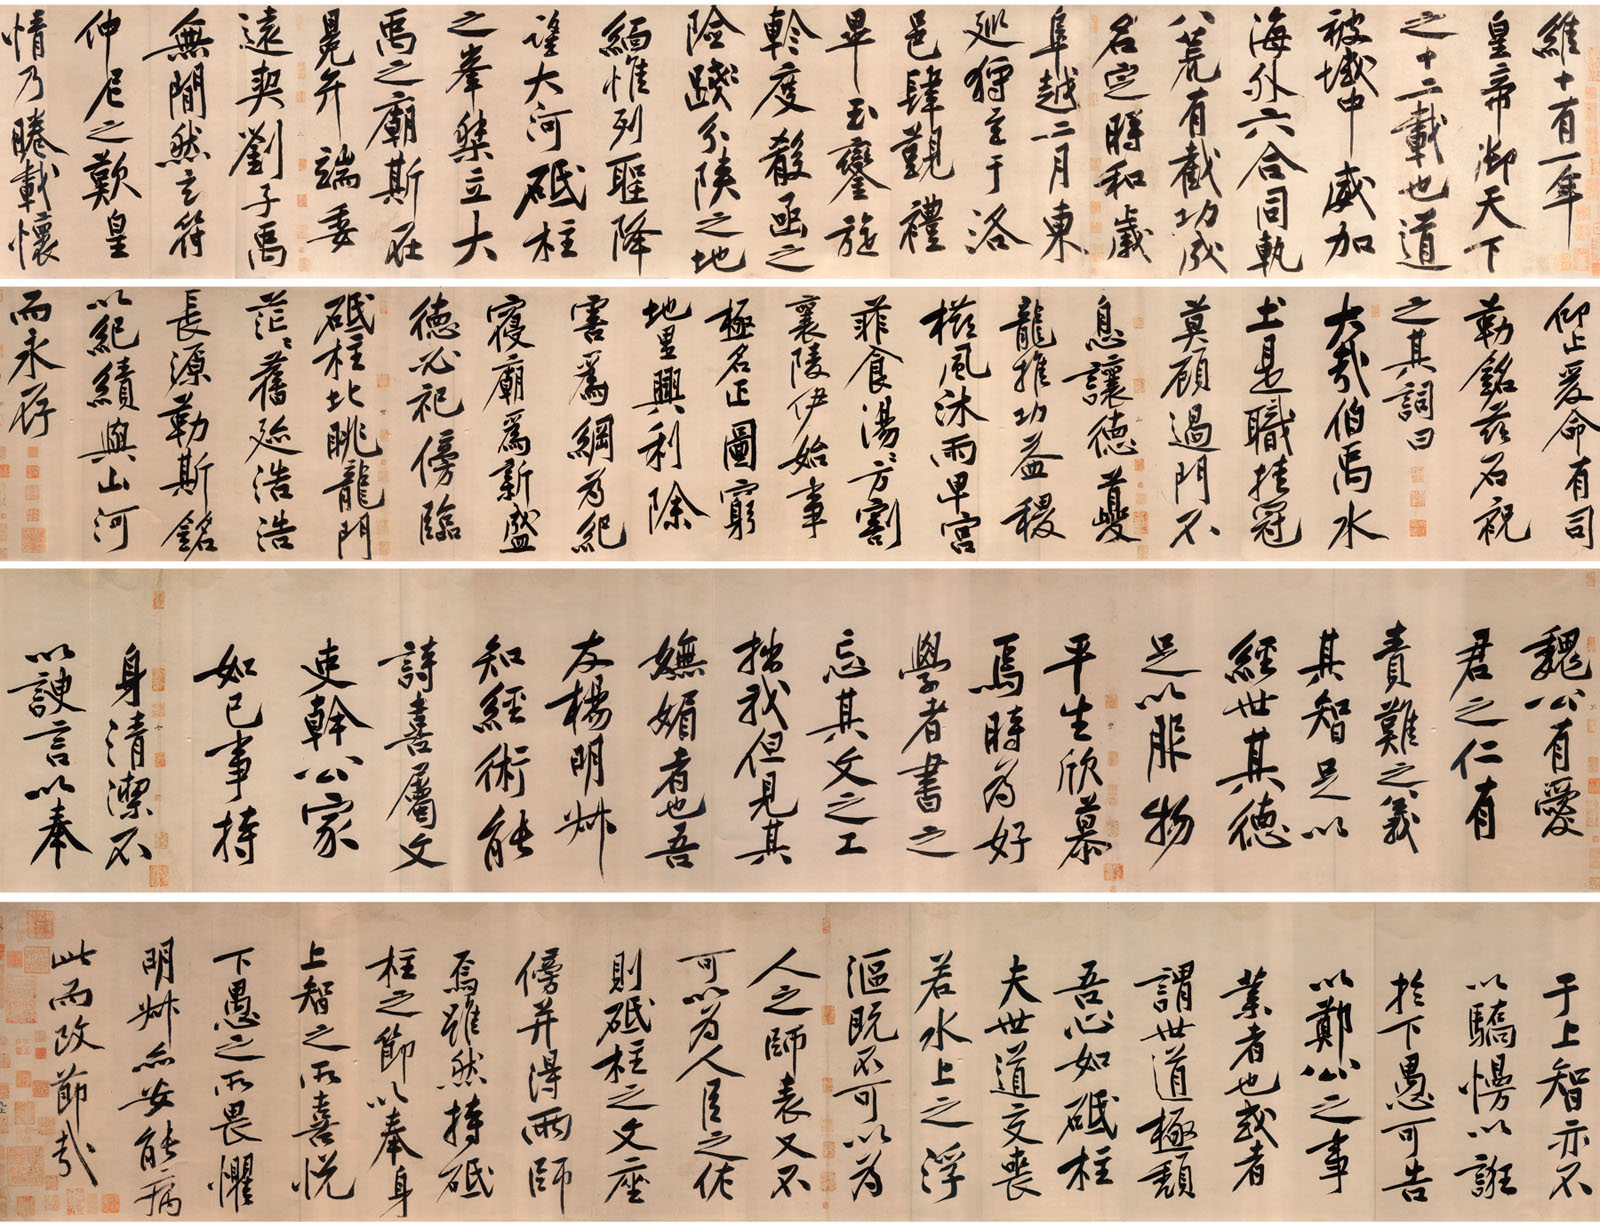 維十有一年
皇帝御天下
之十二載也道
被域中威加
海外六合同軌
八荒有截功成
名定時和歲
阜越二月東
巡狩至于洛
邑肆覲禮
畢玉鑾旋
軫度殽函之
險踐分陝之地
緬惟列聖降
望大河砥柱
之峯桀立大
禹之廟斯在
冕弁端委
遠契劉子禹
無間然玄符
仲尼之歎皇
情乃睠載懷
仰止爰命有司
勒銘茲石祝
之其詞曰
大哉伯禹水
土是職挂冠
莫顧過門不
息讓德夔
龍推功益稷
櫛風沐雨卑宮
菲食湯湯方割
襄陵伊始事
極名正圖窮
地里興利除
害爲綱爲紀
寢廟爲新盛
德必祀傍臨
砥柱北眺龍門
茫茫舊迹浩浩
長源勒斯銘
以紀績與山河
而永存
魏公有愛
君之仁有
責難之義
其智足以
經世其德
足以服物
平生欣慕
焉時爲好
學者書之
忘其文之工
拙我但見其
嫵媚者也吾
友楊明叔
知經術能
詩喜屬文
吏幹公家
如己事持
身清潔不
以諛言以奉
于上智亦不
以驕慢以誑
於下愚可告
以鄭公之事
業者也或者
謂世道極頹
吾心如砥柱
夫世道交喪
若水上之浮
漚既不可以爲
人之師表又不
可以爲人臣之佐
則砥柱之文座
傍并得兩師
焉雖然持砥
柱之節以奉身
上智之所喜悅
下愚之所畏懼
明叔亦安能病
此而改節哉